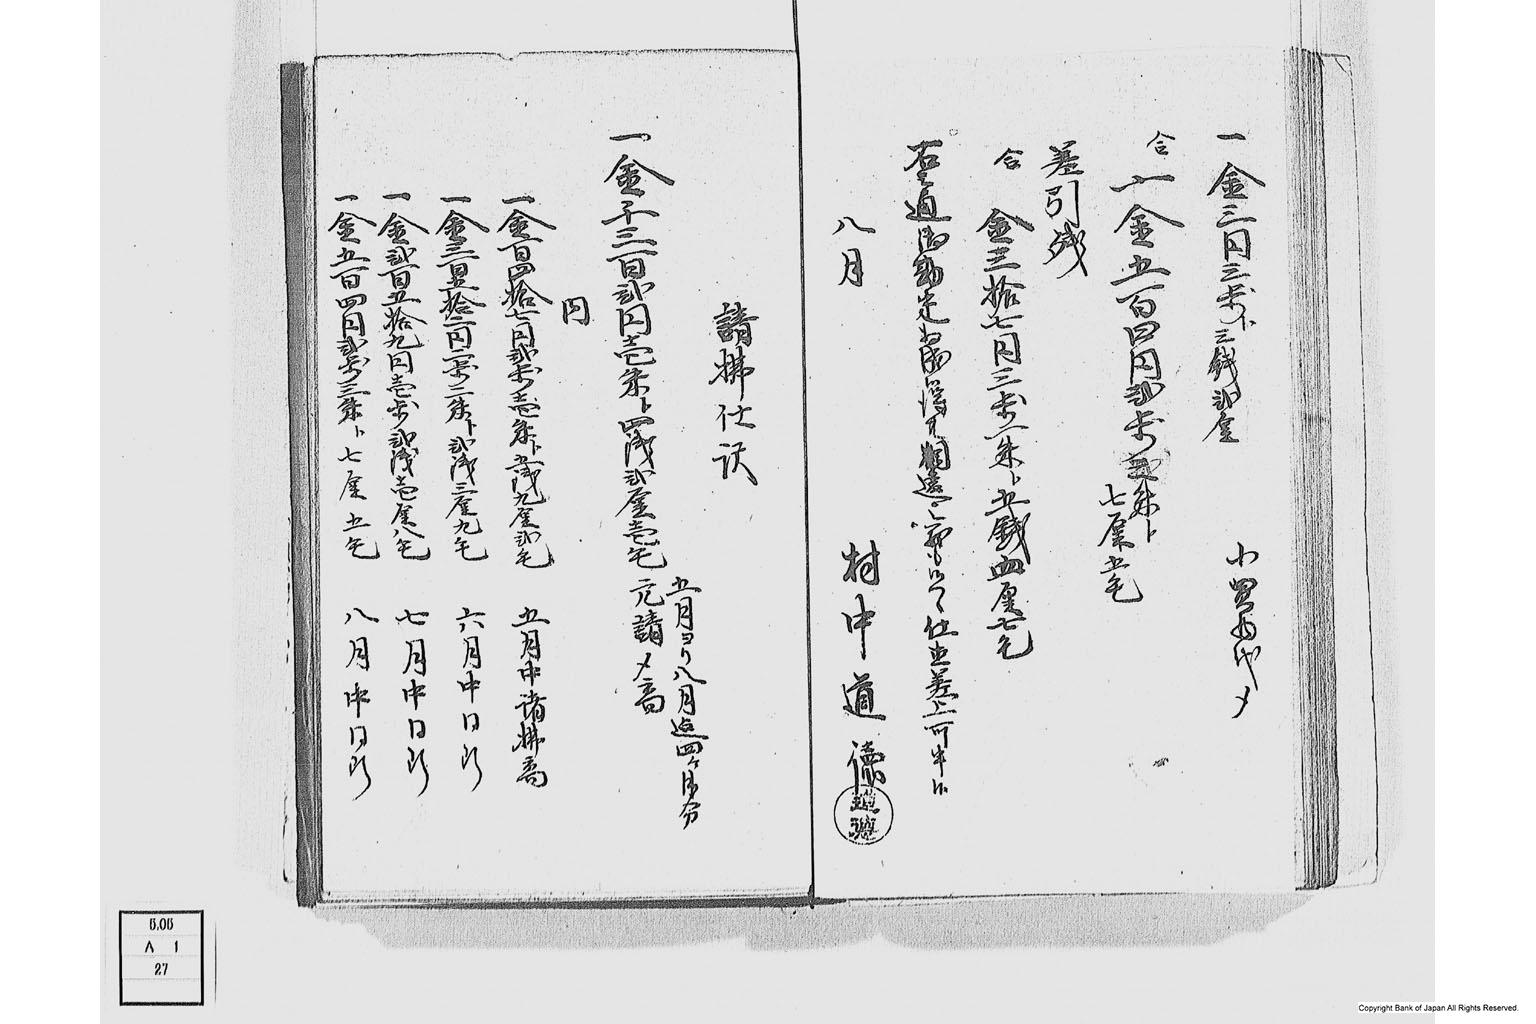 一金三円三歩ト三銭弐厘
小買物代〆
合
一金五百四円弐歩三朱ト
七厘五毛
差引残
合 金三拾七円三歩一朱ト五銭四厘七毛
右之通御勘定
相違
仕立差上可申候
八月
村中道徳
請払仕訳
一金千三百弐円壱朱ト四銭弐厘壱毛
五月ヨリ八月迄四ヶ月分
元請〆高
内
一金百四拾七円弐歩壱朱ト五銭九厘弐毛 五月中諸払高
一金三百九拾二円二歩二朱ト弐銭三厘九毛 六月中同断
一金弐百五拾九円壱歩弐銭壱厘八毛 七月中同断
一金五百四円弐歩三朱ト七厘五毛 八月中同断
5.05
A 1
27
Copyright Bank of Japan All Rights Reserved.